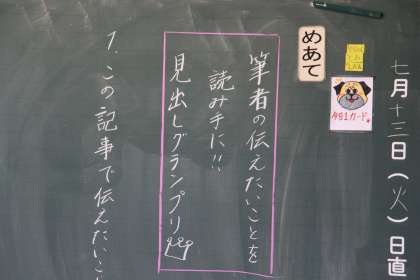 七月十三日（火）日直
めあて
筆者の伝えたいことを
読み手に!!
見出しグランプリ
1. この記事で伝えたいこ